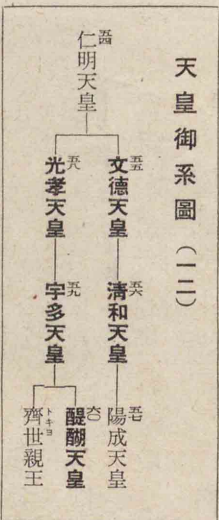 天皇御系圖（一二）
五四 仁明天皇
五五 文德天皇
五六 淸和天皇
五七 陽成天皇
五八 光孝天皇
五九 宇多天皇
六〇 醍醐天皇
齊世親王 トキヨ